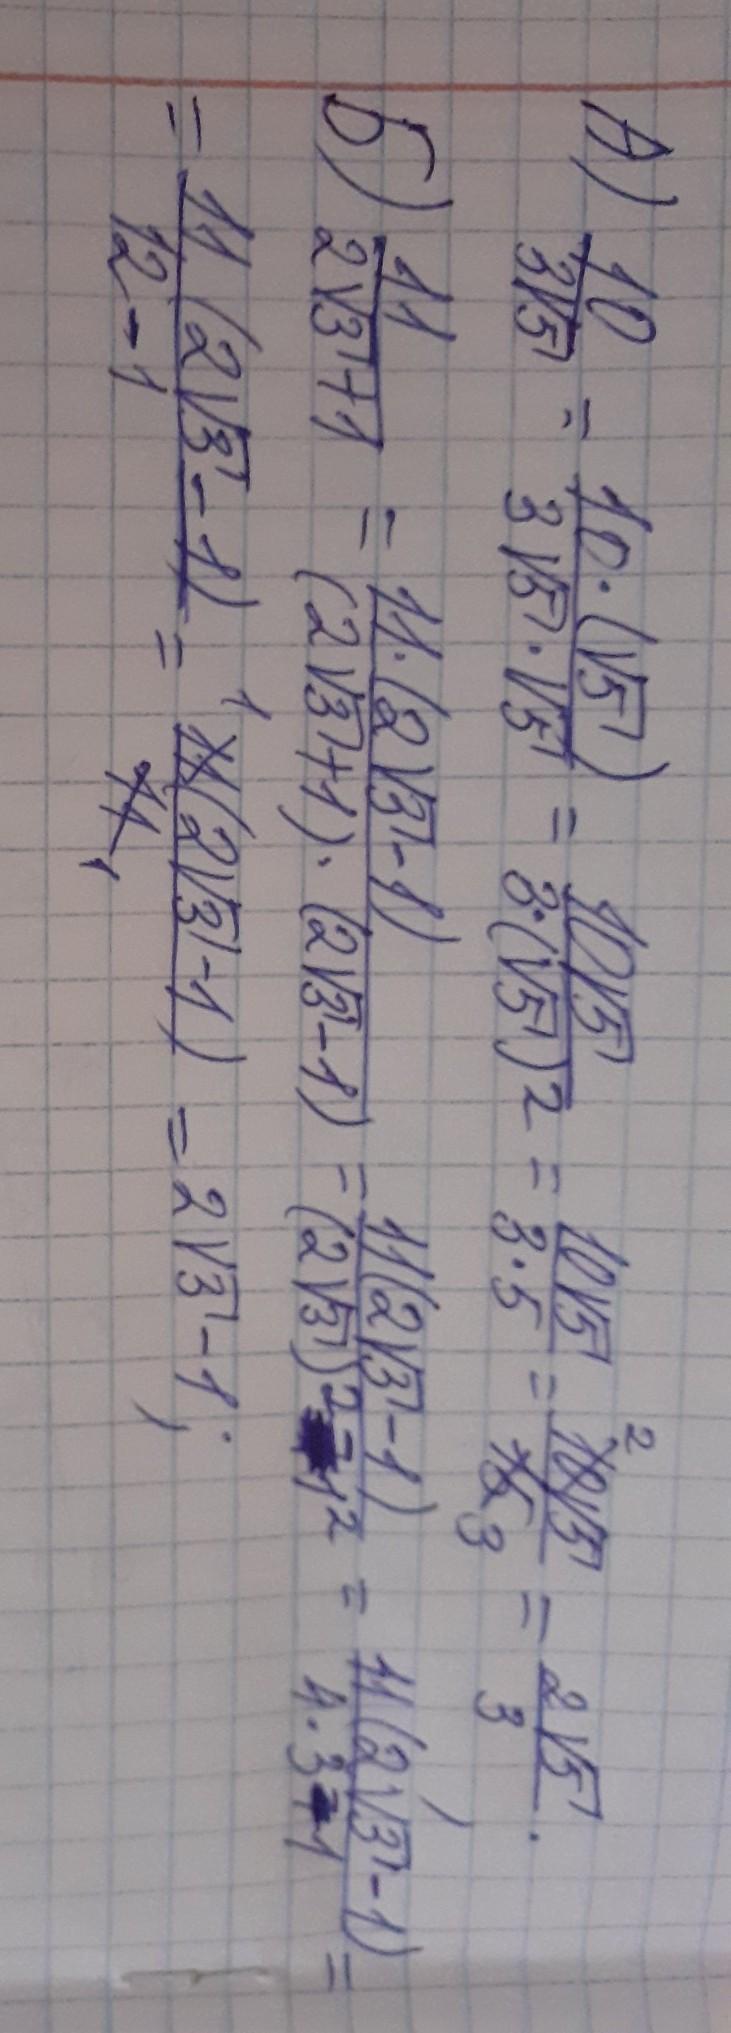 А) 10/(3√5) = 10·(√5)/(3√5·√5) = 10√5/(3·(√5)²) = 10√5/(3·5) = 10√5/15 = 2√5/3.
Б) 11/(2√3+1) = 11·(2√3-1)/((2√3+1)·(2√3-1)) = 11(2√3-1)/((2√3)²-1²) = 11(2√3-1)/(4·3-1) =
= 11(2√3-1)/(12-1) = 11(2√3-1)/11 = 2√3-1;